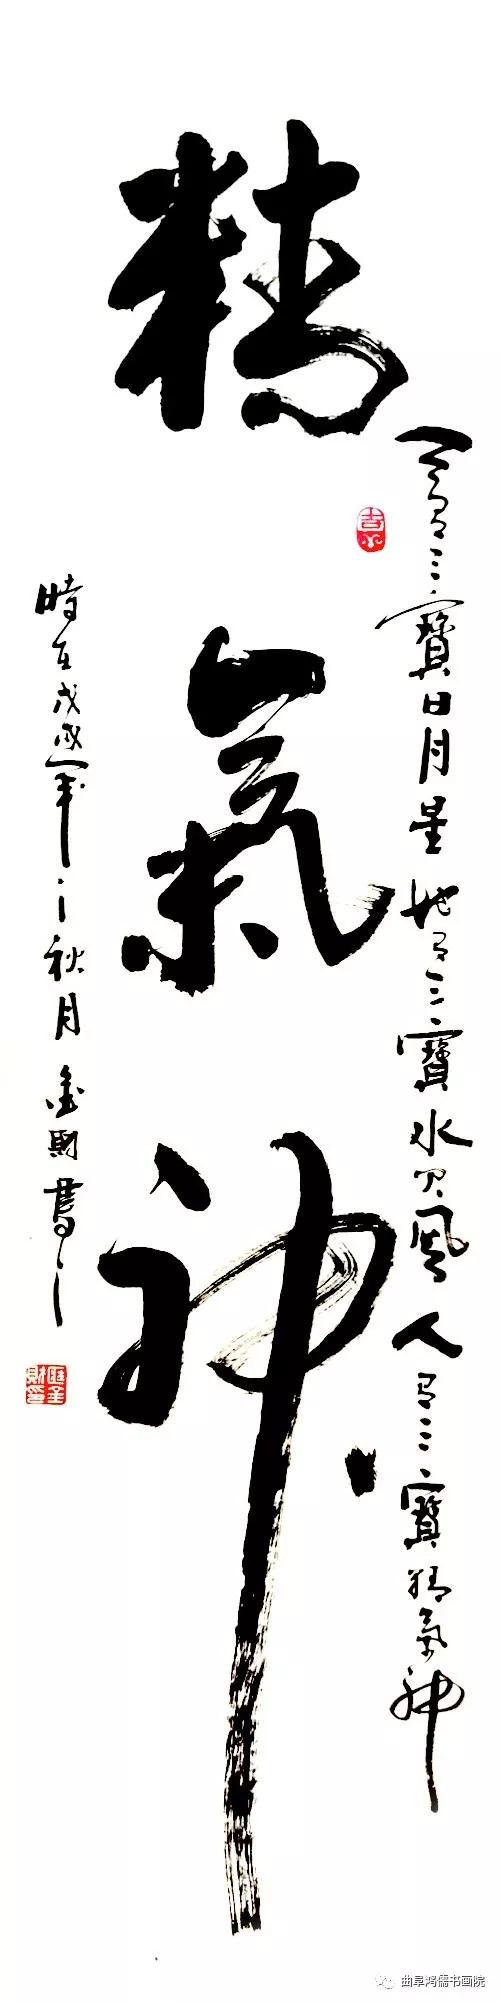 天有三寶日月星地有三寶水火風人有三寶精氣神
精氣神
時在戊戌年之秋月金財書之
曲阜鸿儒书画院